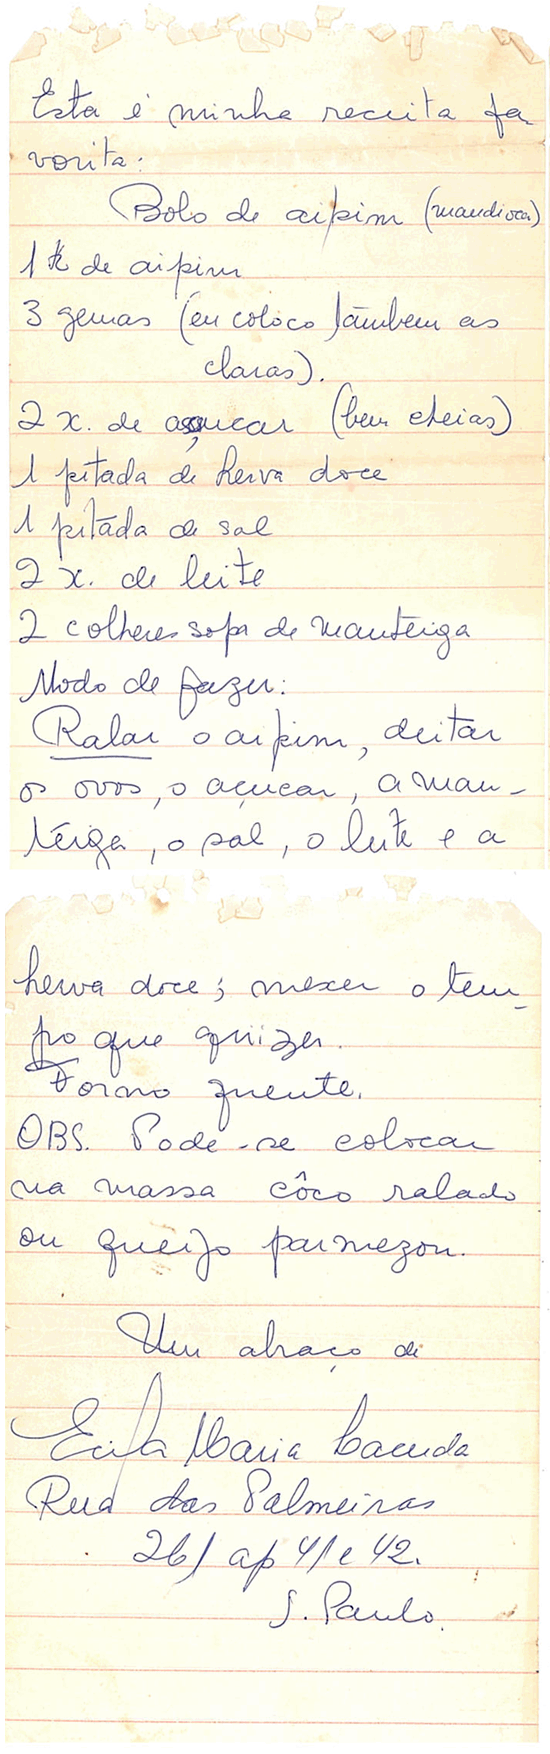 Esta é minha receita fa
vorita:
Bolo de aipim (mandioca)
1 k de aipim
3 gemas (eu coloco também as
claras).
2 x. de açucar (bem cheias)
1 pitada de herva doce
1 pitada de sal
2 x. de leite
2 colheres sopa de manteiga
Modo de fazer:
Ralar o aipim, deitar
os ovos, o açucar, a man-
teiga, o sal, o leite e a
herva doce; mexer o tem-
po que quizer.
Forno quente.
OBS. Pode-se colocar
na massa côco ralado
ou queijo parmezon.
Um abraço de
Maria
Rua das Palmeiras
261 ap 41 e 42.
S. Paulo.